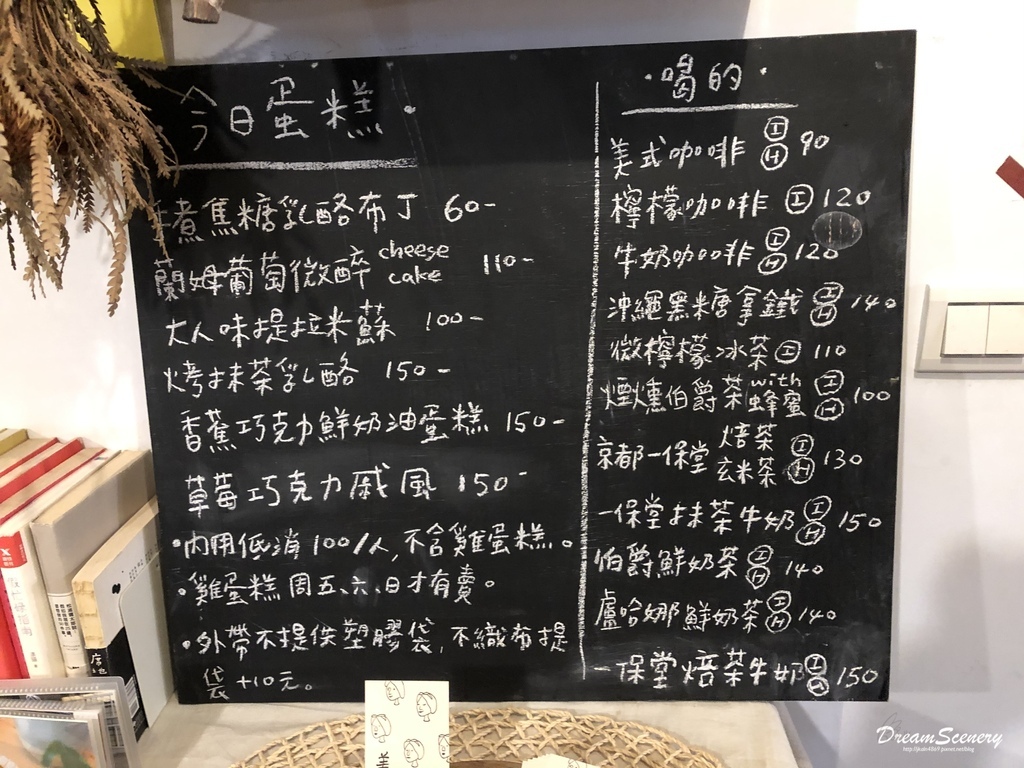 今日蛋糕·
煮焦糖乳酪布丁 60-
蘭姆葡萄微醉 cheese cake 110-
大人味提拉米蘇 100-
烤抹茶乳酪 150-
香蕉巧克力鮮奶油蛋糕 150-
草莓巧克力戚風 150-
·內用低消100/人,不含雞蛋糕。
·雞蛋糕周五、六、日才有賣。
·外帶不提供塑膠袋,不織布提
袋+10元。
·喝的·
美式咖啡 Ⓘ Ⓗ 90
檸檬咖啡 Ⓘ 120
牛奶咖啡 Ⓘ Ⓗ 120
沖繩黑糖拿鐵 Ⓘ Ⓗ 140
微檸檬冰茶 Ⓘ 110
煙燻伯爵茶 with 蜂蜜 Ⓘ Ⓗ 100
京都一保堂 焙茶 玄米茶 Ⓘ Ⓗ 130
一保堂抹茶牛奶 Ⓘ Ⓗ 150
伯爵鮮奶茶 Ⓘ Ⓗ 140
盧哈娜鮮奶茶 Ⓘ Ⓗ 140
一保堂焙茶牛奶 Ⓘ Ⓗ 150
DreamScenery